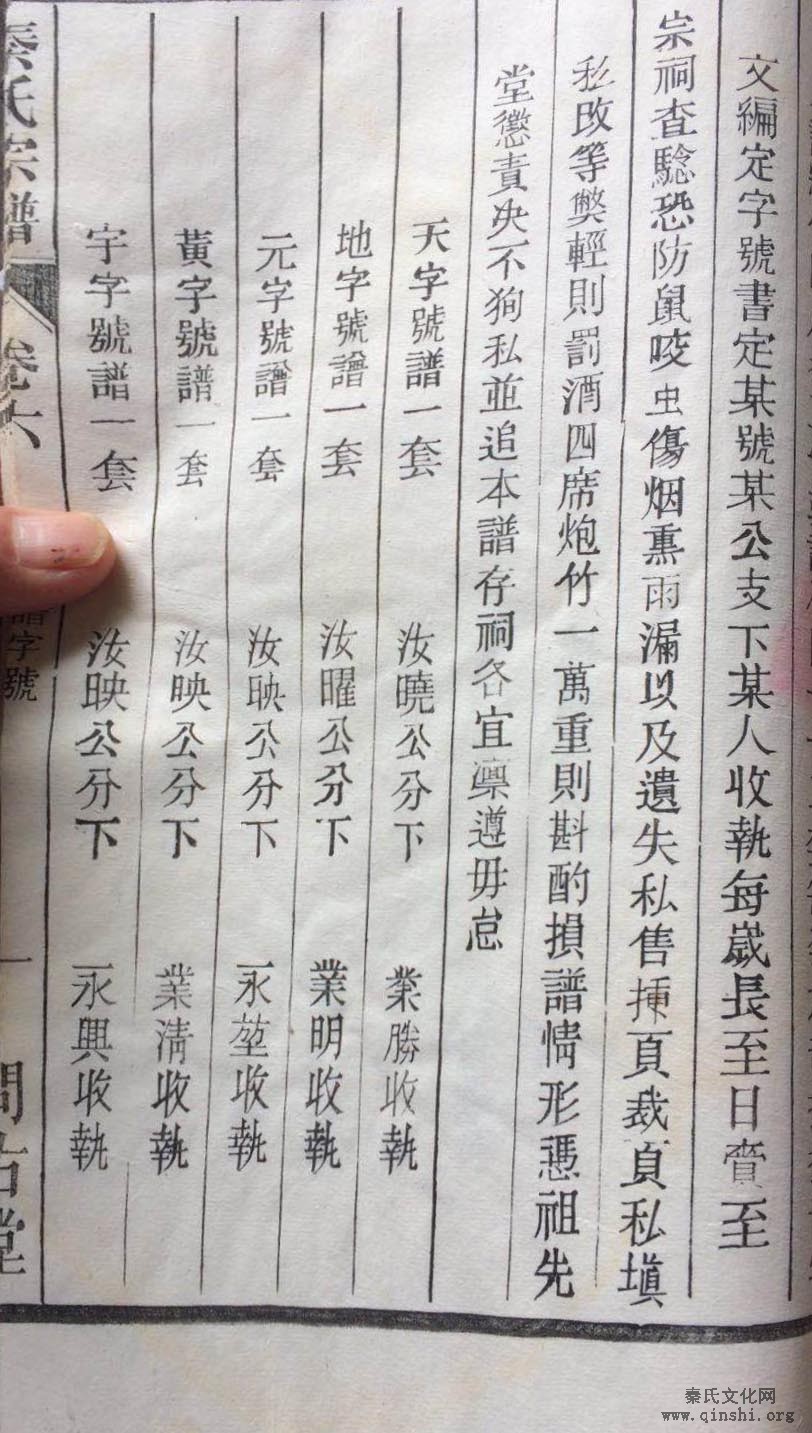 文編定字號書定某號某公支下某人收執每歲長至日賫至
宗祠查驗恐防鼠咬虫傷烟熏雨漏以及遺失私售揷頁裁頁私塡
私改等獘輕則罰酒四席炮竹一萬重則斟酌損譜情形憑祖先
堂懲責决不狥私並追本譜存祠各宜凛遵毋怠
天字號譜一套 汝曉公分下 業勝收執
地字號譜一套 汝曜公分下 業明收執
元字號譜一套 汝映公分下 永堃收執
黃字號譜一套 汝映公分下 業淸收執
宇字號譜一套 汝映公分下 永興收執
秦氏宗譜 卷六 譜字號 一
秦氏文化网
www.qinshi.org